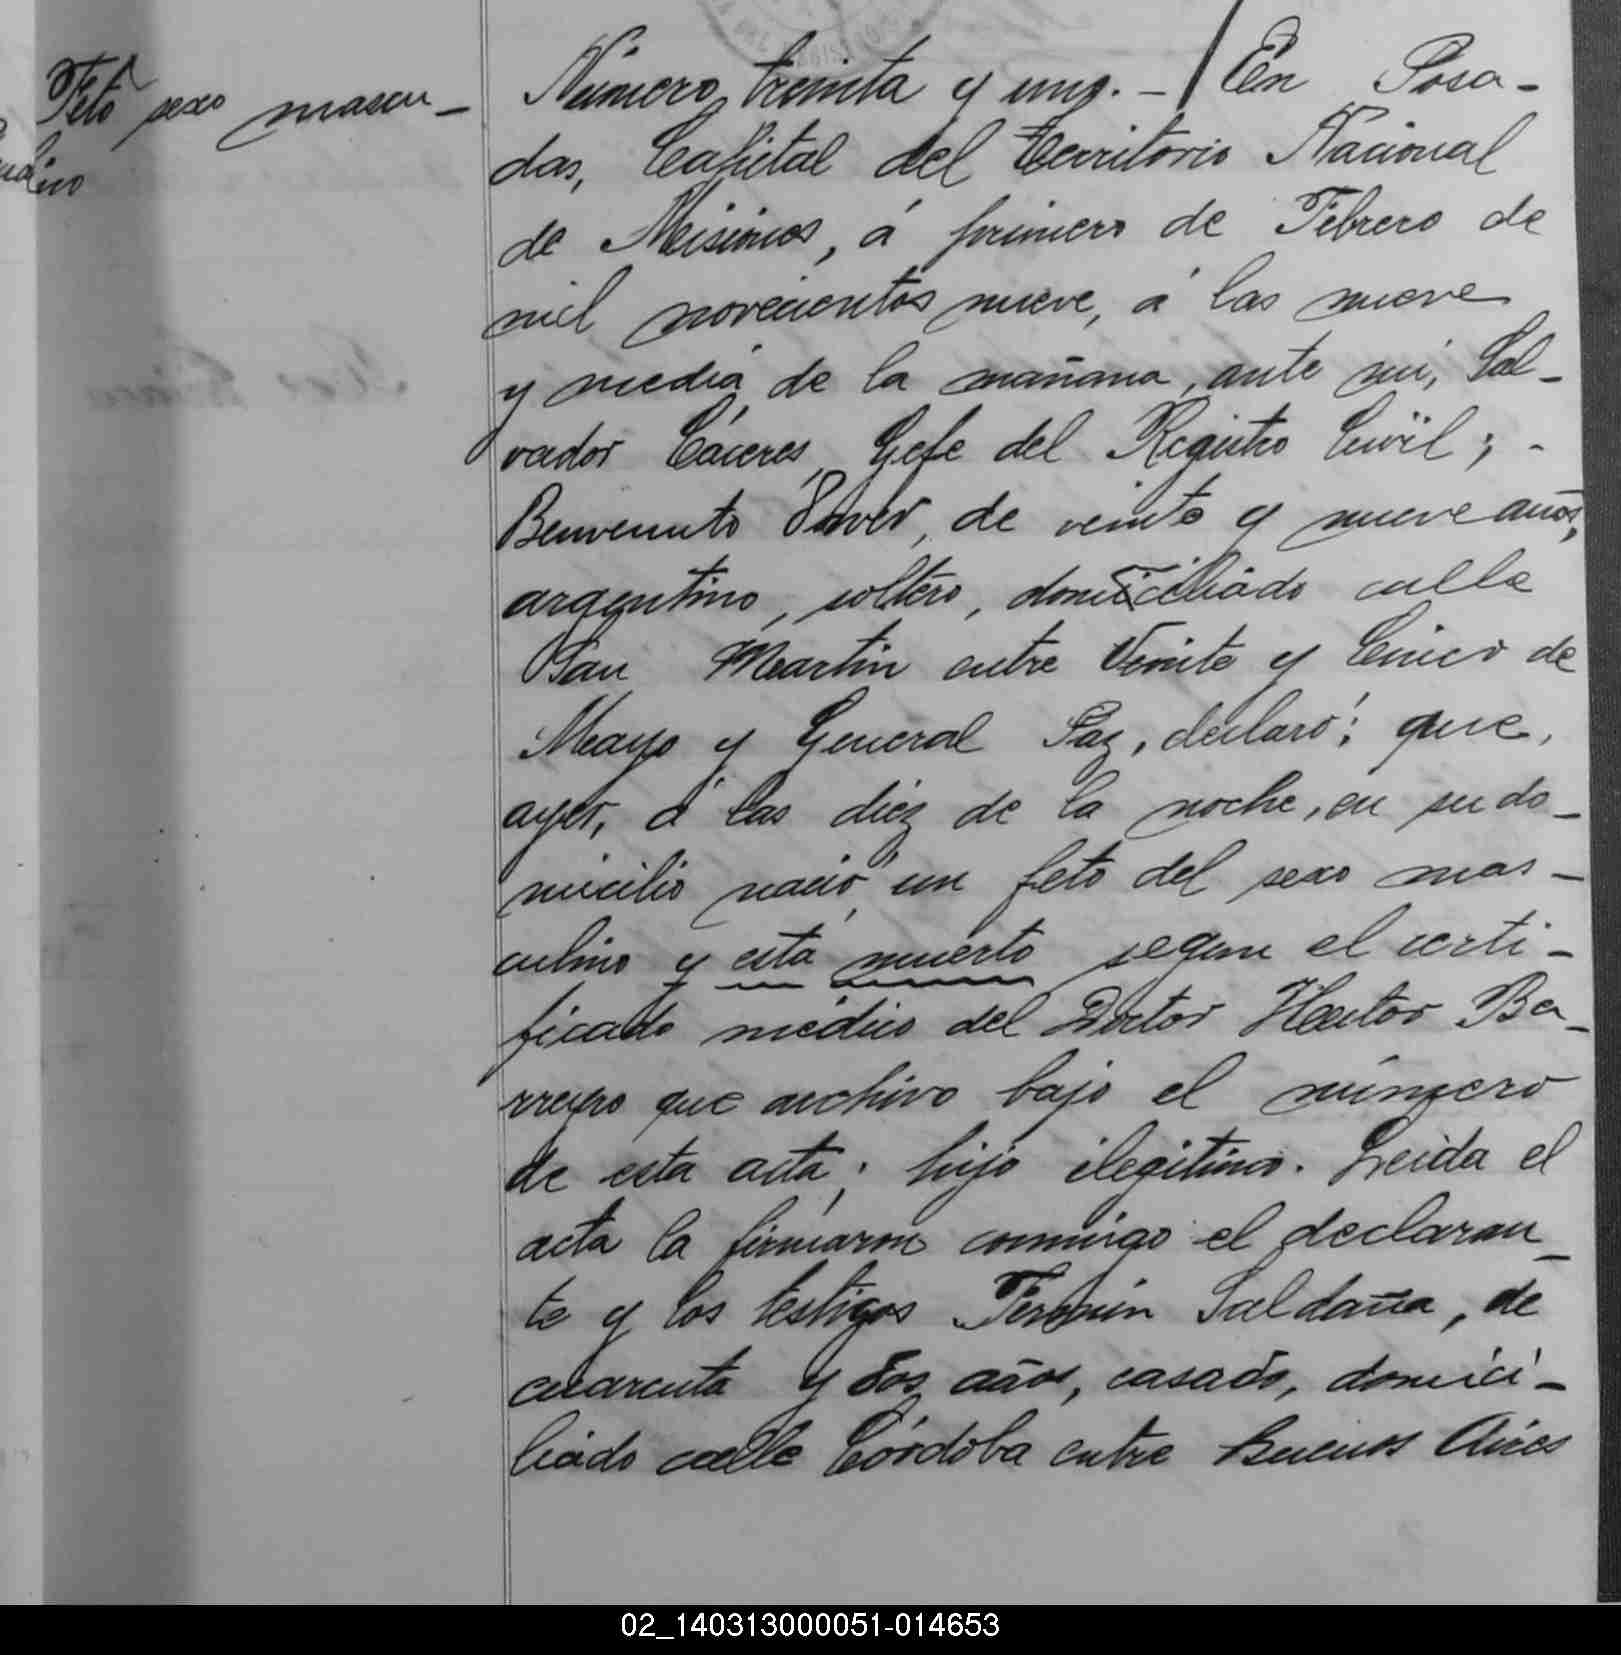 Feto sexo mascu-
lino
Número treinta y uno. - / En Posa-
das, Capital del Territorio Nacional
de Misiones, á primero de Febrero de
mil novecientos nueve, á las nueve
y media de la mañana, ante mi, Sal-
vador Cáceres, Gefe del Registro Civil; -
Benvenuto, de veinte y nueve años,
argentino, soltero, domiciliado calle
San Martin entre Veinte y Cinco de
Mayo y General Paz, declaró: que,
ayer, á las diez de la noche, en su do-
micilio nació un feto del sexo mas-
culino y está muerto segun el certi-
ficado médico del Doctor Hector Ba-
rreyro que archivo bajo el número
de esta acta; hijo ilegitimo. Leida el
acta la firmaron conmigo el declaran-
te y los testigos Fermin Saldaña, de
cuarenta y dos años, casado, domici-
liado calle Córdoba entre Buenos Aires
02_140313000051-014653